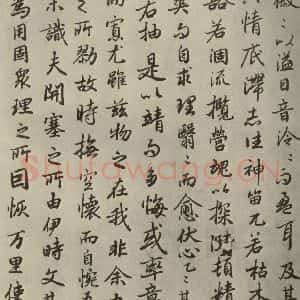 徽〻以溢目音泠〻而盈耳及其
六情底滯志往神留兀若枯木
豁若涸流攬營魂以探賾頓精
爽而自求理翳〻而愈伏思乙〻其
若抽是以情而多悔或率意
而寡尤雖茲物之在我非余力
之所勠故時撫空懷而自惋吾
未識夫開塞之所由伊文其
為用固眾理之所因恢万里使
Shufawang.cn